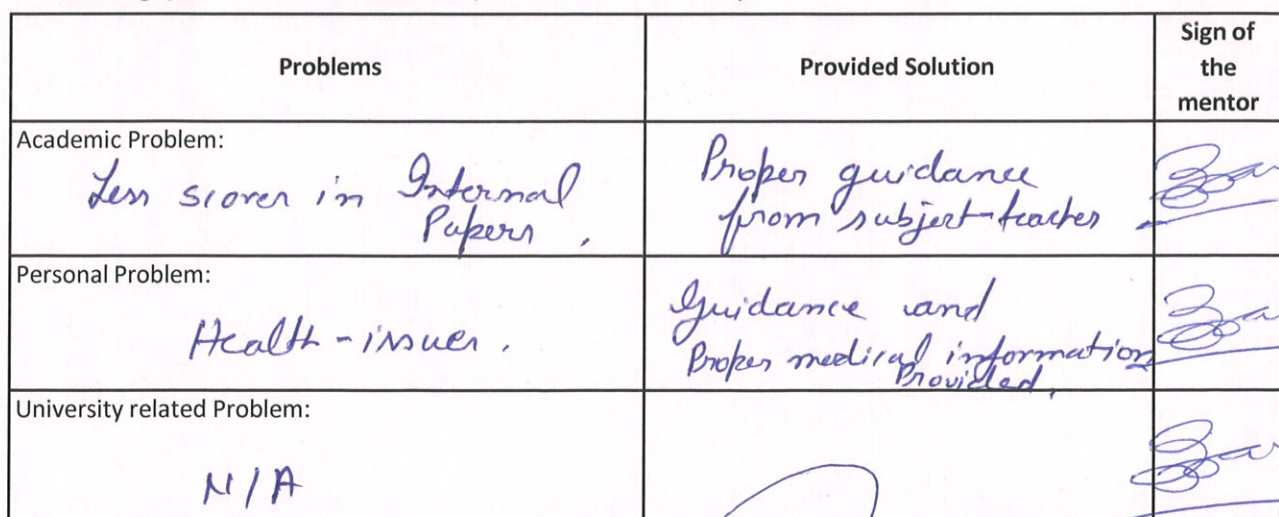 Problems
Provided Solution
Sign of
the
mentor
Academic Problem:
Less scores in Internal
Papers.
Proper guidance
from subject-teacher
Personal Problem:
Health-issues.
Guidance and
Proper medical information
Provided.
University related Problem:
N/A